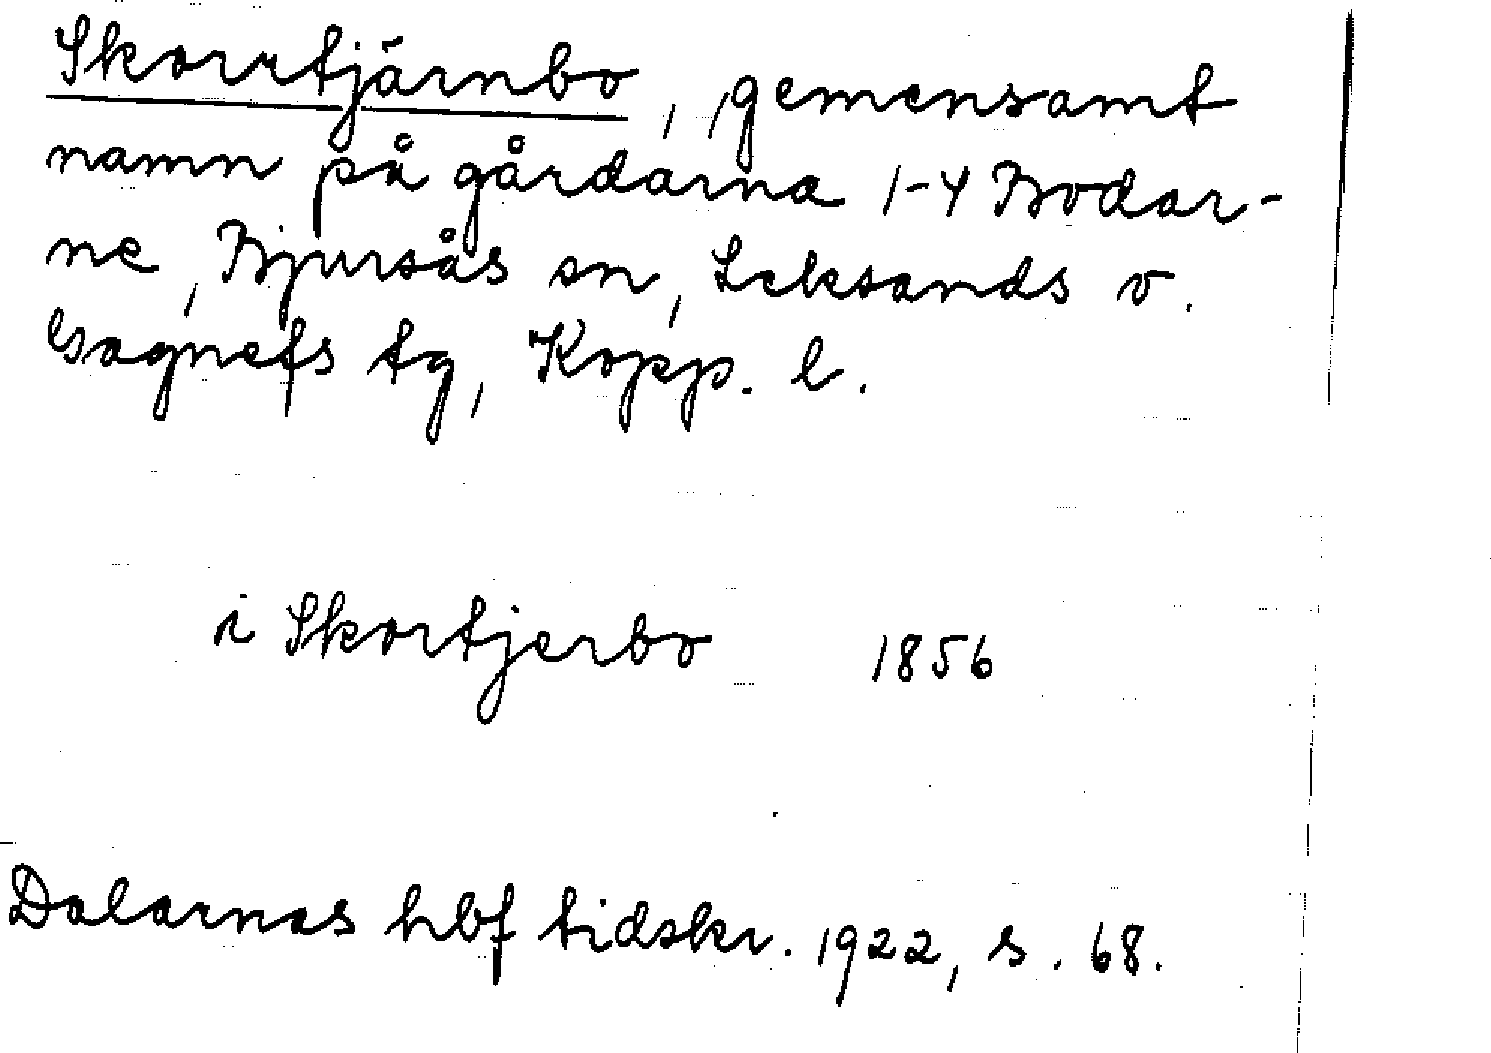 Skorrtjärnbo, gemensamt
namn på gårdarna 1-4 Bodar-
ne, Bjursås sn, Leksands o.
Gagnefs tg, Kopp. l.
i Skortjerbo 1856
Dalarnas hbf tidskr. 1922, s. 68.